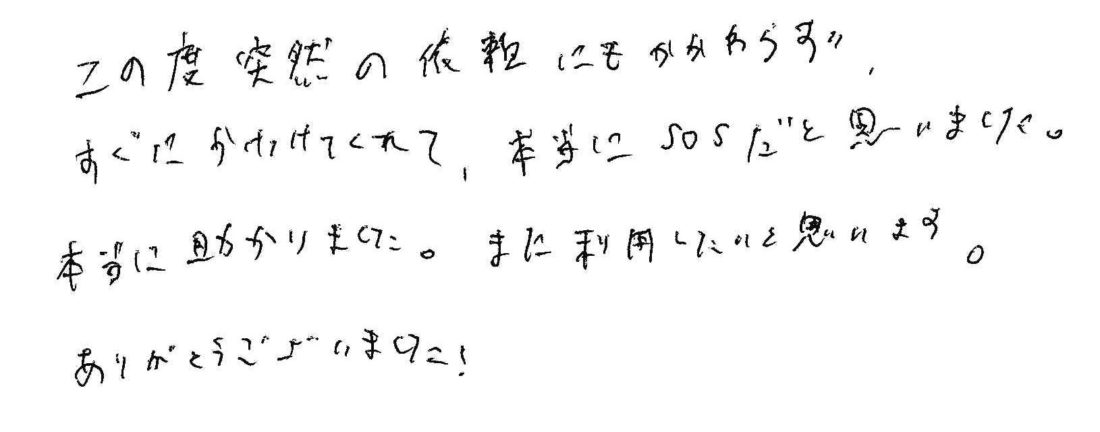 この度突然の依頼にもかかわらず、
すぐにかけつけてくれて、本当にSOSだと思いました。
本当に助かりました。また利用したいと思います。
ありがとうございました!